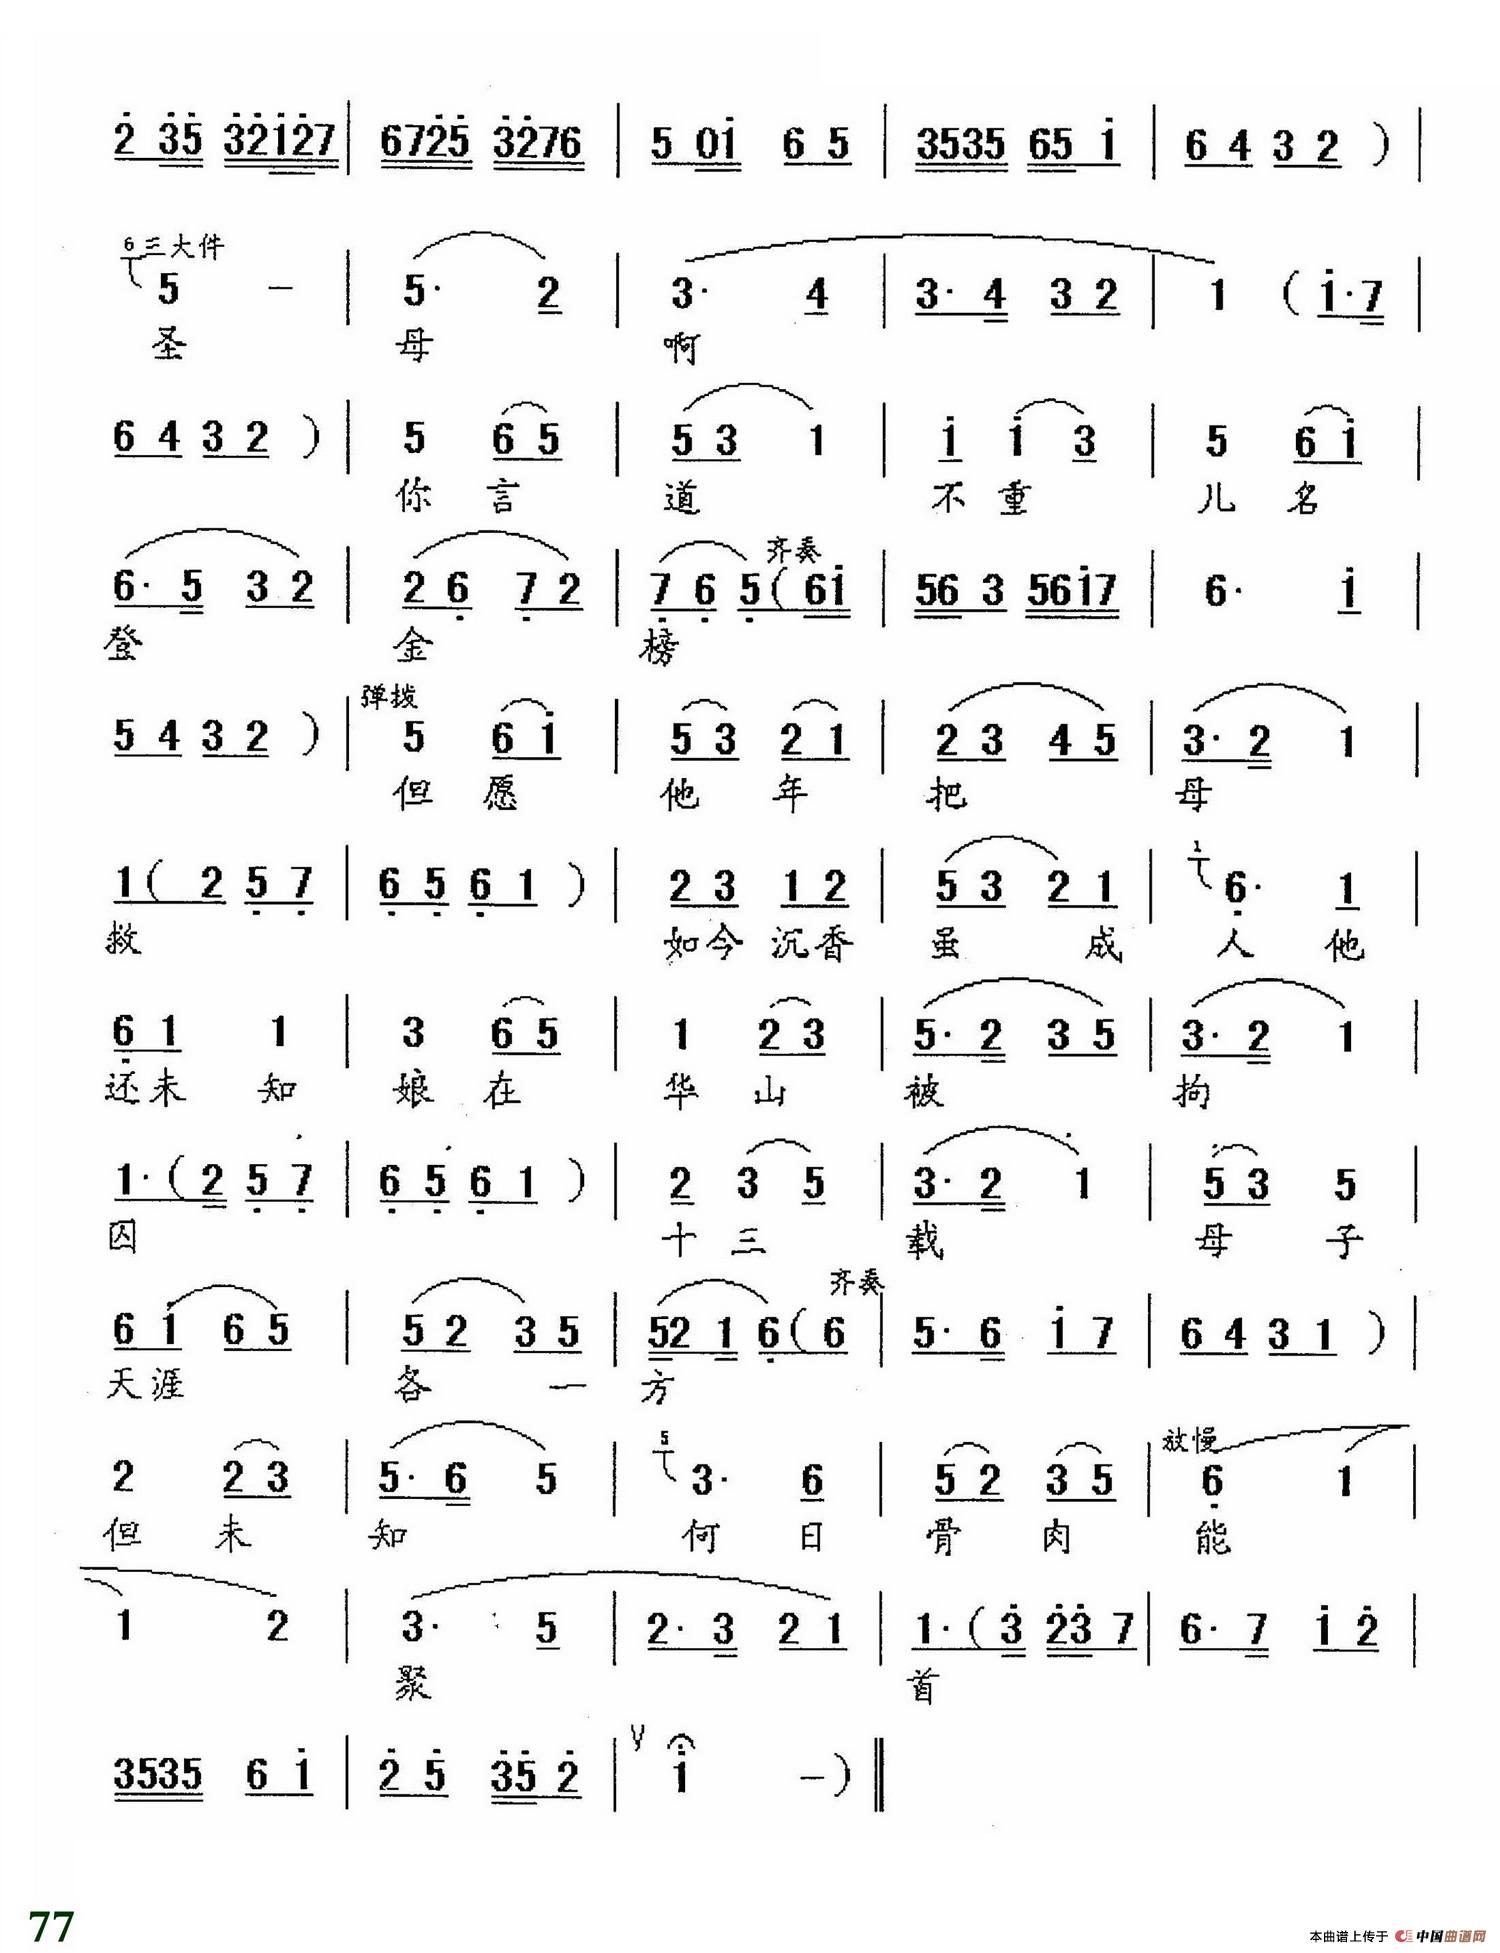 2 35 32127 | 6725 3276 | 5 01 6 5 | 3535 65 1 | 6 4 3 2 ) |
6 三大件
5 – | 5· 2 | 3· 4 | 3· 4 3 2 | 1 ( 1·7 |
圣 母 啊
6 4 3 2 ) | 5 6 5 | 5 3 1 | 1 1 3 | 5 6 1 |
你 言 道 不 重 儿 名
齐奏
6· 5 3 2 | 2 6 7 2 | 7 6 5 ( 61 | 56 3 5617 | 6· 1 |
登 金 榜
弹拨
5 4 3 2 ) | 5 6 1 | 5 3 2 1 | 2 3 4 5 | 3· 2 1 |
但 愿 他 年 把 母
1
1 ( 2 5 7 | 6 5 6 1 ) | 2 3 1 2 | 5 3 2 1 | 6· 1 |
救 如今 沉香 虽 成 人 他
6 1 1 | 3 6 5 | 1 2 3 | 5· 2 3 5 | 3· 2 1 |
还未 知 娘 在 华 山 被 拘
1· ( 2 5 7 | 6 5 6 1 ) | 2 3 5 | 3· 2 1 | 5 3 5 |
囚 十 三 载 母 子
齐奏
6 1 6 5 | 5 2 3 5 | 52 1 6 ( 6 | 5· 6 1 7 | 6 4 3 1 ) |
天涯 各 一 方
5 放慢
2 2 3 | 5· 6 5 | 3· 6 | 5 2 3 5 | 6 1 |
但 未 知 何 日 骨 肉 能
1 2 | 3· 5 | 2· 3 2 1 | 1· ( 3 23 7 | 6· 7 1 2 |
聚 首
3535 6 1 | 2 5 35 2 | V 1 – ) ||
77
本曲谱上传于 中国曲谱网